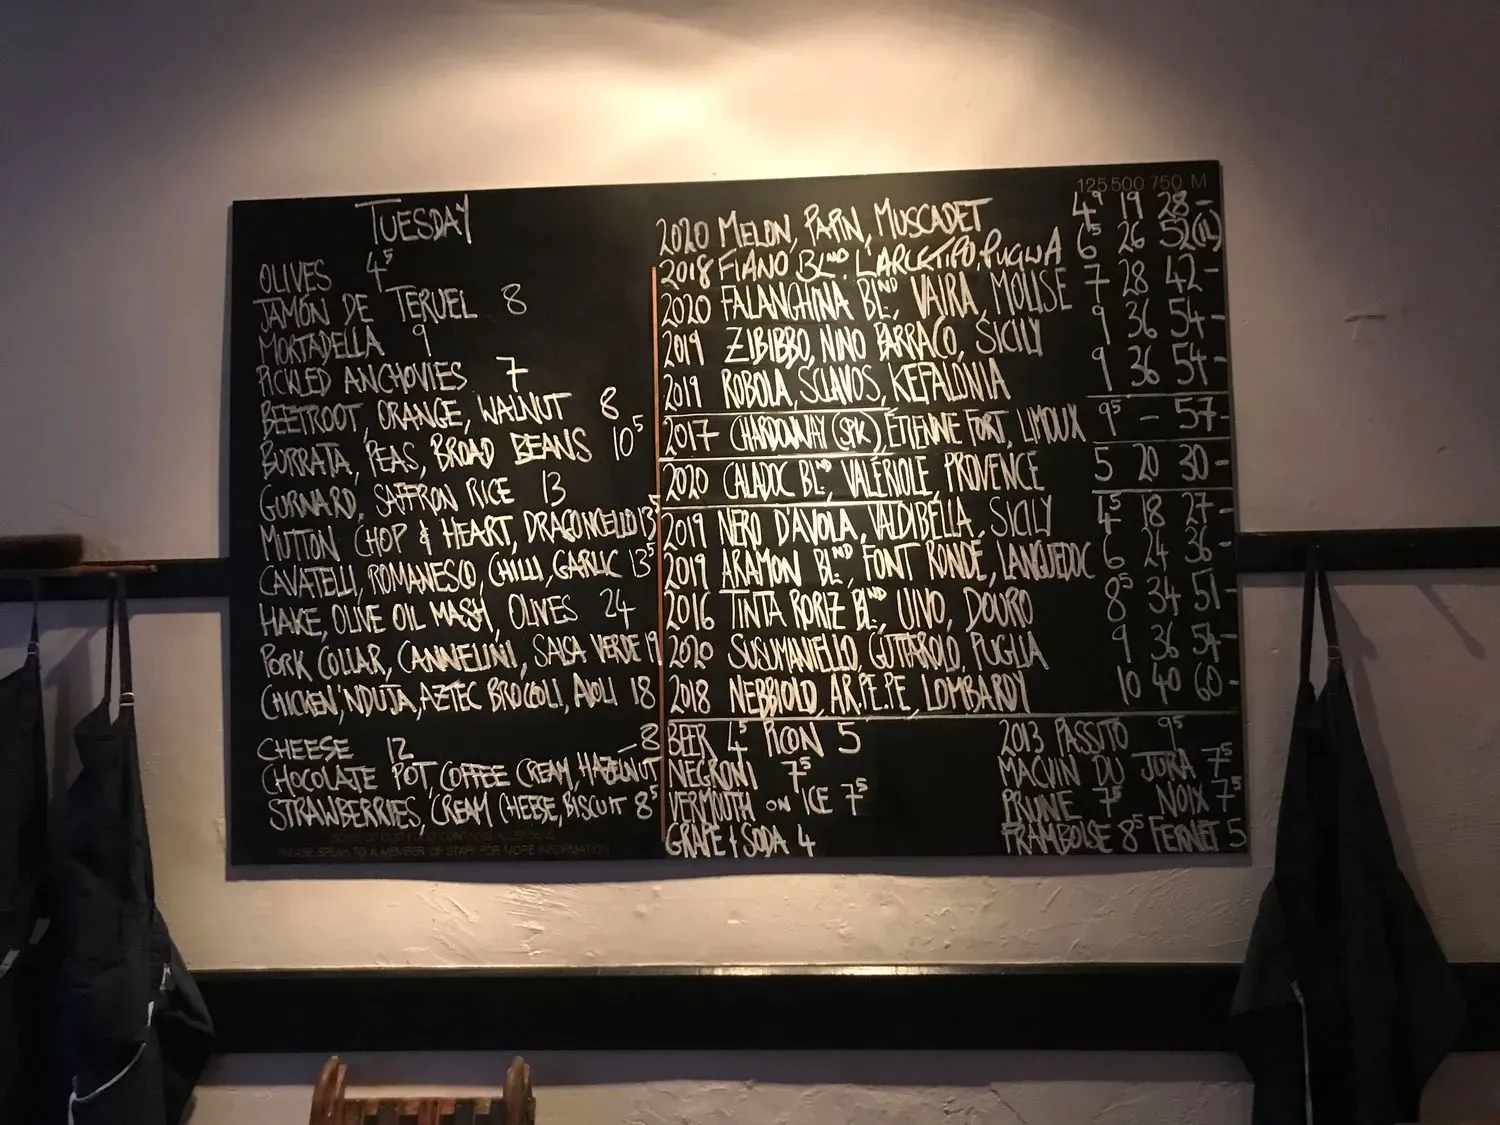 TUESDAY
OLIVES 4⁵
JAMÓN DE TERUEL 8
MORTADELLA 9
PICKLED ANCHOVIES 7
BEETROOT, ORANGE, WALNUT 8
BURRATA, PEAS, BROAD BEANS 10⁵
GURNARD, SAFFRON RICE 13
MUTTON CHOP & HEART, DRAGONCELLO 13⁵
CAVATELLI, ROMANESCO, CHILLI, GARLIC 13⁵
HAKE, OLIVE OIL MASH, OLIVES 24
PORK COLLAR, CANNELINI, SALSA VERDE 19
CHICKEN, 'NDUJA, AZTEC BROCCOLI, AIOLI 18
CHEESE 12
CHOCOLATE POT, COFFEE CREAM, HAZELNUT –8
STRAWBERRIES, CREAM CHEESE, BISCUIT 8⁵
PLEASE SPEAK TO A MEMBER OF STAFF FOR MORE INFORMATION
125 500 750 M
2020 MELON, PAPIN, MUSCADET 4⁹ 19 28-
2018 FIANO BLND, L'ARCETIPO, PUGLIA 6⁵ 26 52(1L)
2020 FALANGHINA BLND, VAIRA, MOLISE 7 28 42-
2019 ZIBIBBO, NINO BARRACO, SICILY 9 36 54-
2019 ROBOLA, SCLAVOS, KEFALONIA 9 36 54-
2017 CHARDONNAY (SPK), ETIENNE FORT, LIMOUX 9⁵ - 57-
2020 CALADOC BLND, VALÉRIOLE, PROVENCE 5 20 30-
2019 NERO D'AVOLA, VALDIBELLA, SICILY 4⁵ 18 27-
2019 ARAMON BLND, FONT RONDE, LANGUEDOC 6 24 36-
2016 TINTA RORIZ BLND, UIVO, DOURO 8⁵ 34 51-
2020 SUSUMANIELLO, GUTTAROLO, PUGLIA 9 36 54-
2018 NEBBIOLO, AR.PE.PE, LOMBARDY 10 40 60-
BEER 4⁵ PICON 5
NEGRONI 7⁵
VERMOUTH ON ICE 7⁵
GRAPE & SODA 4
2013 PASSITO 9⁵
MACVIN DU JURA 7⁵
PRUNE 7⁵ NOIX 7⁵
FRAMBOISE 8⁵ FERNET 5